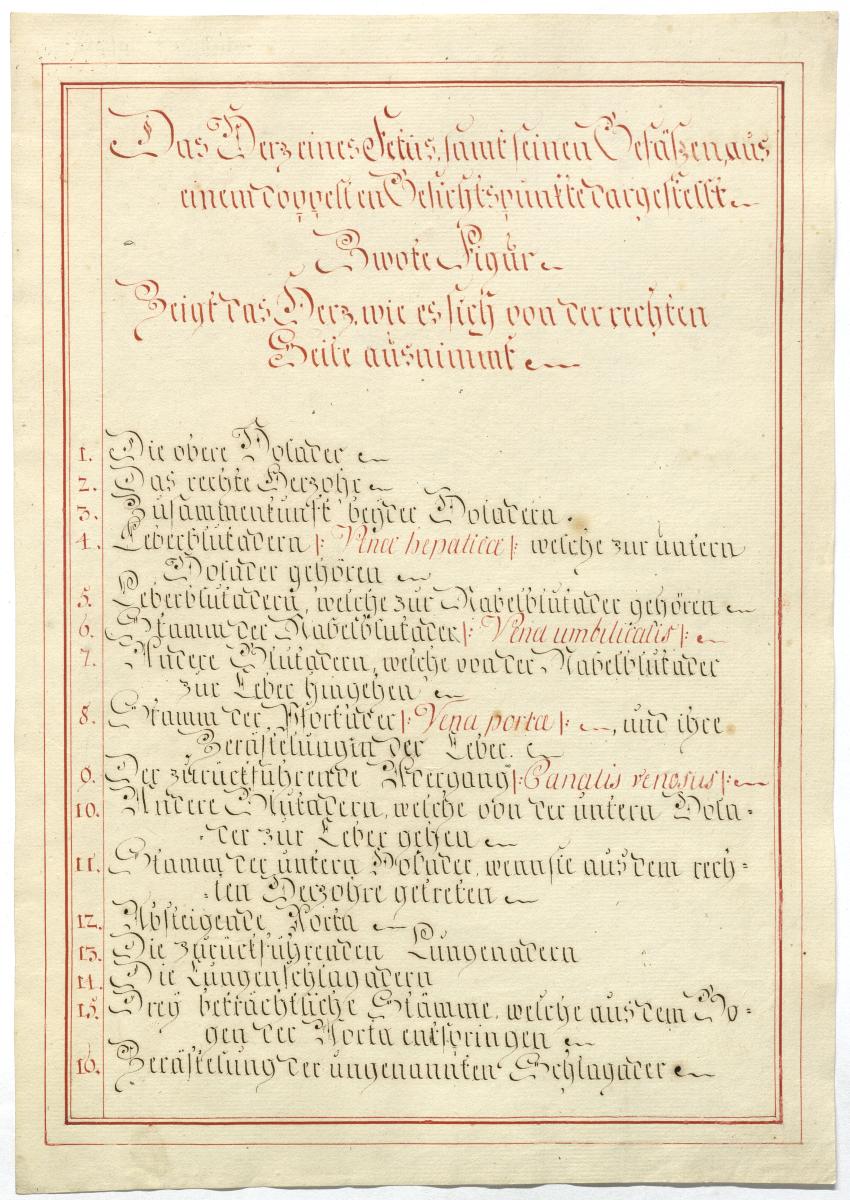 Das Herz eines Fetus, samt seinen Gefäßen, aus
einem doppelten Gesichtspunkte dargestellt
Zwote Figur
Zeigt das Herz, wie es sich von der rechten
Seite ausnimmt
1. Die obere Holader
2. Das rechte Herzohr
3. Zusammenkunft beyder Holadern.
4. Leberblutadern |: Venæ hepaticæ :| welche zur untern
Holader gehören
5. Leberblutadern, welche zur Nabelblutader gehören
6. Stamm der Nabelblutader |: Vena umbilicalis :|
7. Andere Blutadern, welche von der Nabelblutader
zur Leber hingehen
8. Stamm der Pfortader |: Vena portæ :|, und ihre
Verästelung in der Leber.
9. Der zurückführende Adergang |: Canalis venosus :|
10. Andere Blutadern, welche von der untern Hola-
-der zur Leber gehen
11. Stamm der untern Holader, wenn sie aus dem rech-
-ten Herzohre getreten
12. Absteigende Aorta
13. Die zurückführenden Lungenadern
14. Die Lungenschlagadern
15. Drey beträchtliche Stämme, welche aus dem Bo-
gen der Aorta entspringen
16. Verästelung der ungenannten Schlagader